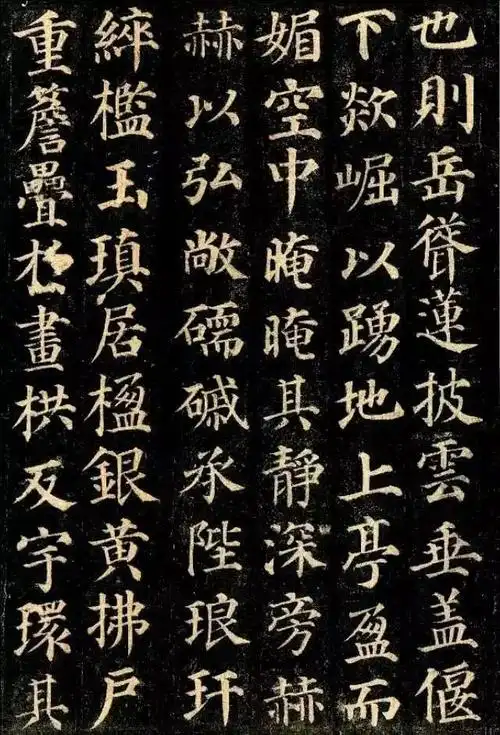 也則岳聳蓮披雲垂盖偃
下欻崛以踴地上亭盈而
媚空中晻晻其靜深旁赫
赫以弘敞礝磩承陛琅玕
綷檻玉瑱居楹銀黄拂户
重簷疊於畫栱反宇環其